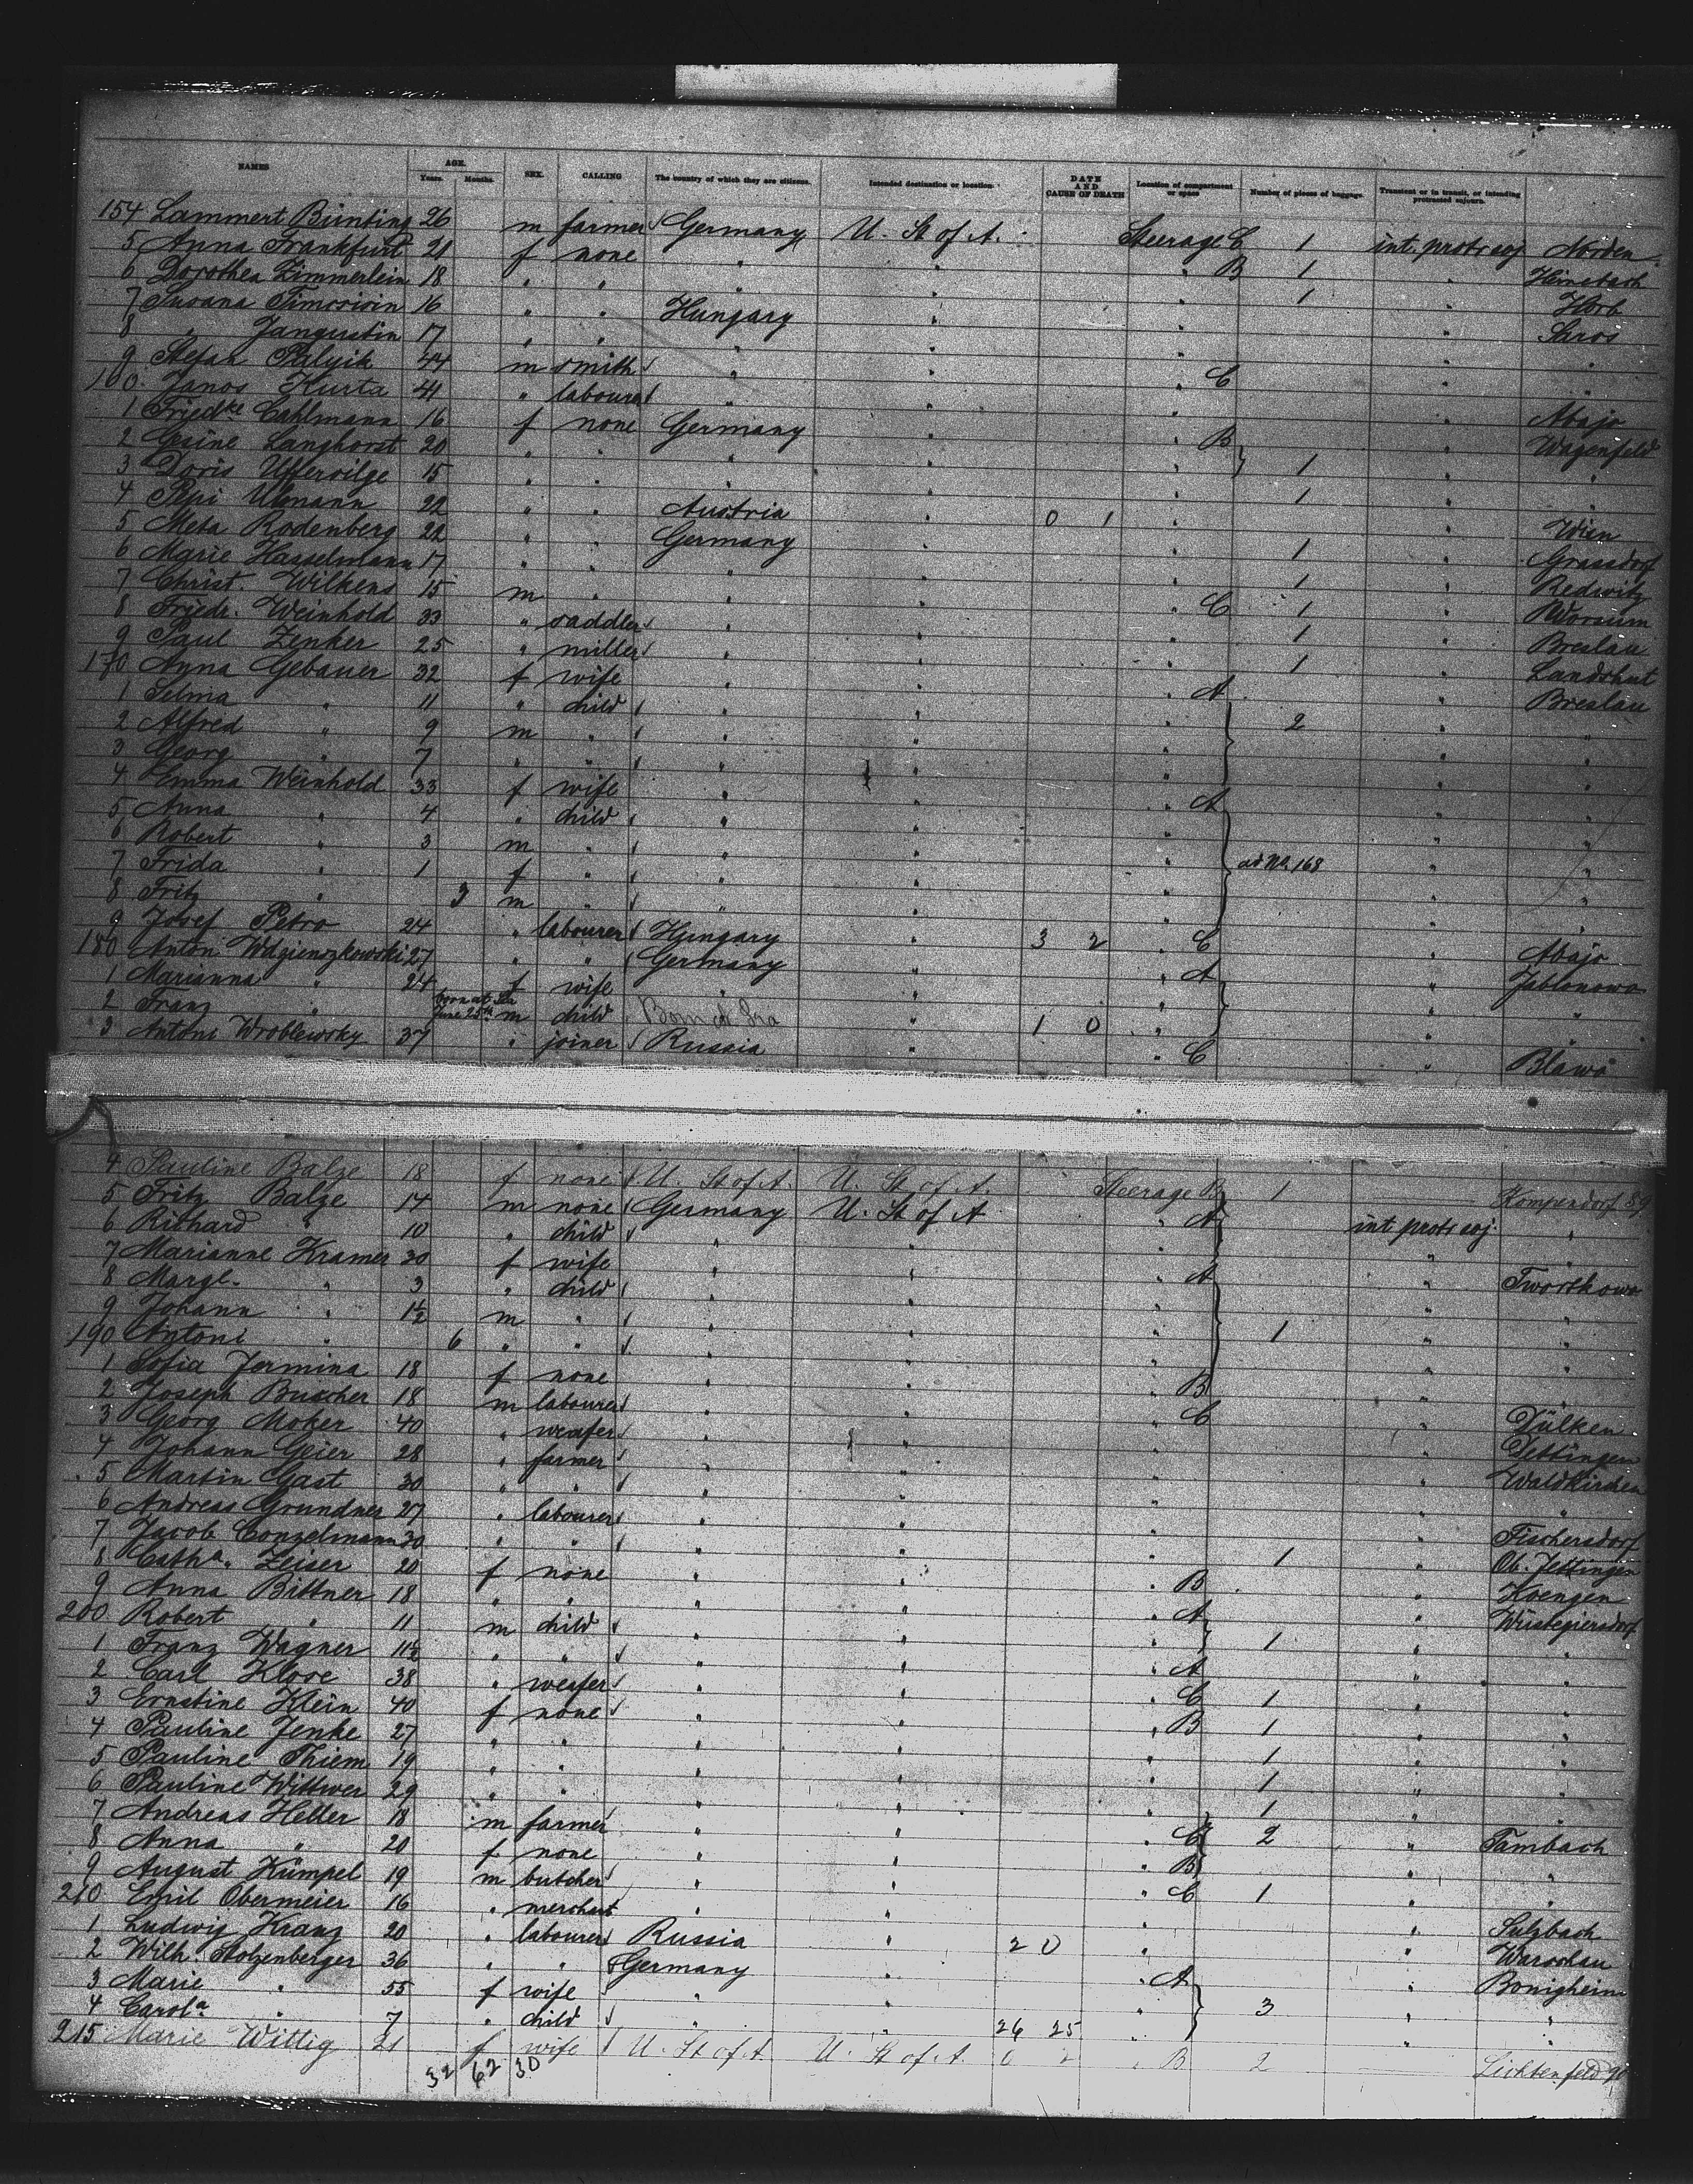 NAMES AGE. Years. Months. SEX. CALLING The country of which they are citizens. Intended destination or location. DATE AND CAUSE OF DEATH Location of compartment or space Number of pieces of baggage. Transient or in transit, or intending protracted sojourn.
154 Lammert Bünting 26 m farmer Germany U. St of A. Steerage C 1 int. protr soj Norden
5 Anna Frankfurt 21 f none " " " B 1 " Heinebach
6 Dorothea Zimmerlein 18 " " " " " 1 " Horb
7 16 " " Hungary " " " Saros
8 " 17 " " " " " " "
9 Stefan Palyik 44 m smith " " " C " "
160 Janos Kurta 41 " labourer " " " " Abajo
1 Friedke Cahlmann 16 f none Germany " " B " Wagenfeld
2 Gesine Langhorst 20 " " " " " 1 " "
3 Doris 15 " " " " " 1 " "
4 Pepi Ulmann 22 " " Austria " 0 1 " " Wien
5 Meta Rodenberg 22 " " Germany " " 1 " Grassdorf
6 Marie Hasselmann 17 " " " " " 1 " Redwitz
7 Christ. Wilkens 15 m " " " " C 1 "
8 Friedr. Weinhold 33 " saddler " " " 1 " Breslau
9 Paul Zenker 25 " miller " " " 1 " Landshut
170 Anna Gebauer 32 f wife " " " A " Breslau
1 Selma " 11 " child " " " 2 " "
2 Alfred " 9 m " " " " " "
3 Georg " 7 " " " " " " "
4 Emma Weinhold 33 f wife " " " A " "
5 Anna " 4 " child " " " " "
6 Robert " 3 m " " " " ad No. 168 " "
7 Frida " 1 f " " " " " "
8 Fritz " 3 m " " " " " "
9 Josef Petro 24 " labourer Hungary " 3 2 " C " Abajo
180 Anton 27 " " Germany " " A " Jablonowo
1 Marianna " 24 f wife " " " " "
2 Franz " born at Sea June 25th m child Born at Sea " 1 0 " " "
3 Antoni Wroblewsky 37 " joiner Russia " " C "
4 Pauline Balze 18 f none U. St of A. U. St of A. Steerage B 1 89
5 Fritz Balze 14 m none Germany U. St of A " A int protr soj. "
6 Richard " 10 " child " " " " "
7 Marianne Kramer 30 f wife " " " A " Tworkowo
8 Margt. " 3 " child " " " " "
9 Johann " 1½ m " " " " 1 " "
190 Antoni " 6 " " " " " " "
1 Sofia Jermina 18 f none " " " B " "
2 Joseph Buscher 18 m labourer " " " C " Dülken
3 Georg Moker 40 " weafer " " " " Dettingen
4 Johann Geier 28 " farmer " " " " Waldkirchen
5 Martin Gast 30 " " " " " " "
6 Andreas Grundner 27 " labourer " " " " Fischersdorf
7 Jacob Conzelmann 30 " " " " " 1 " Ob. Jettingen
8 Catha. Zeiser 20 f none " " " B " Koengen
9 Anna Bittner 18 " " " " " A " Wüstegiersdorf
200 Robert " 11 m child " " " 1 " "
1 Franz Wagner 11½ " " " " " A " "
2 Carl Klose 38 " weafer " " " C 1 " "
3 Ernstine Klein 40 f none " " " B 1 " "
4 Pauline Jenke 27 " " " " " 1 " "
5 Pauline Thiem 19 " " " " " 1 " "
6 Pauline Wittwer 29 " " " " " 1 " "
7 Andreas Heller 18 m farmer " " " C 2 " Tambach
8 Anna " 20 f none " " " B " "
9 August Kümpel 19 m butcher " " " C 1 " "
210 Emil Obermeier 16 " merchant " " " " Sulzbach
1 Ludwig Kranz 20 " labourer Russia " 2 0 " " Warschau
2 Wilh. Stolzenberger 36 " " Germany " " A " Bönigheim
3 Marie " 55 f wife " " " 3 " "
4 Carola " 7 " child " " 26 25 " " "
215 Marie Wittig 21 f wife U. St of A. U. St of A. 0 2 " B 2 Lichtenfeld 90
32 62 30